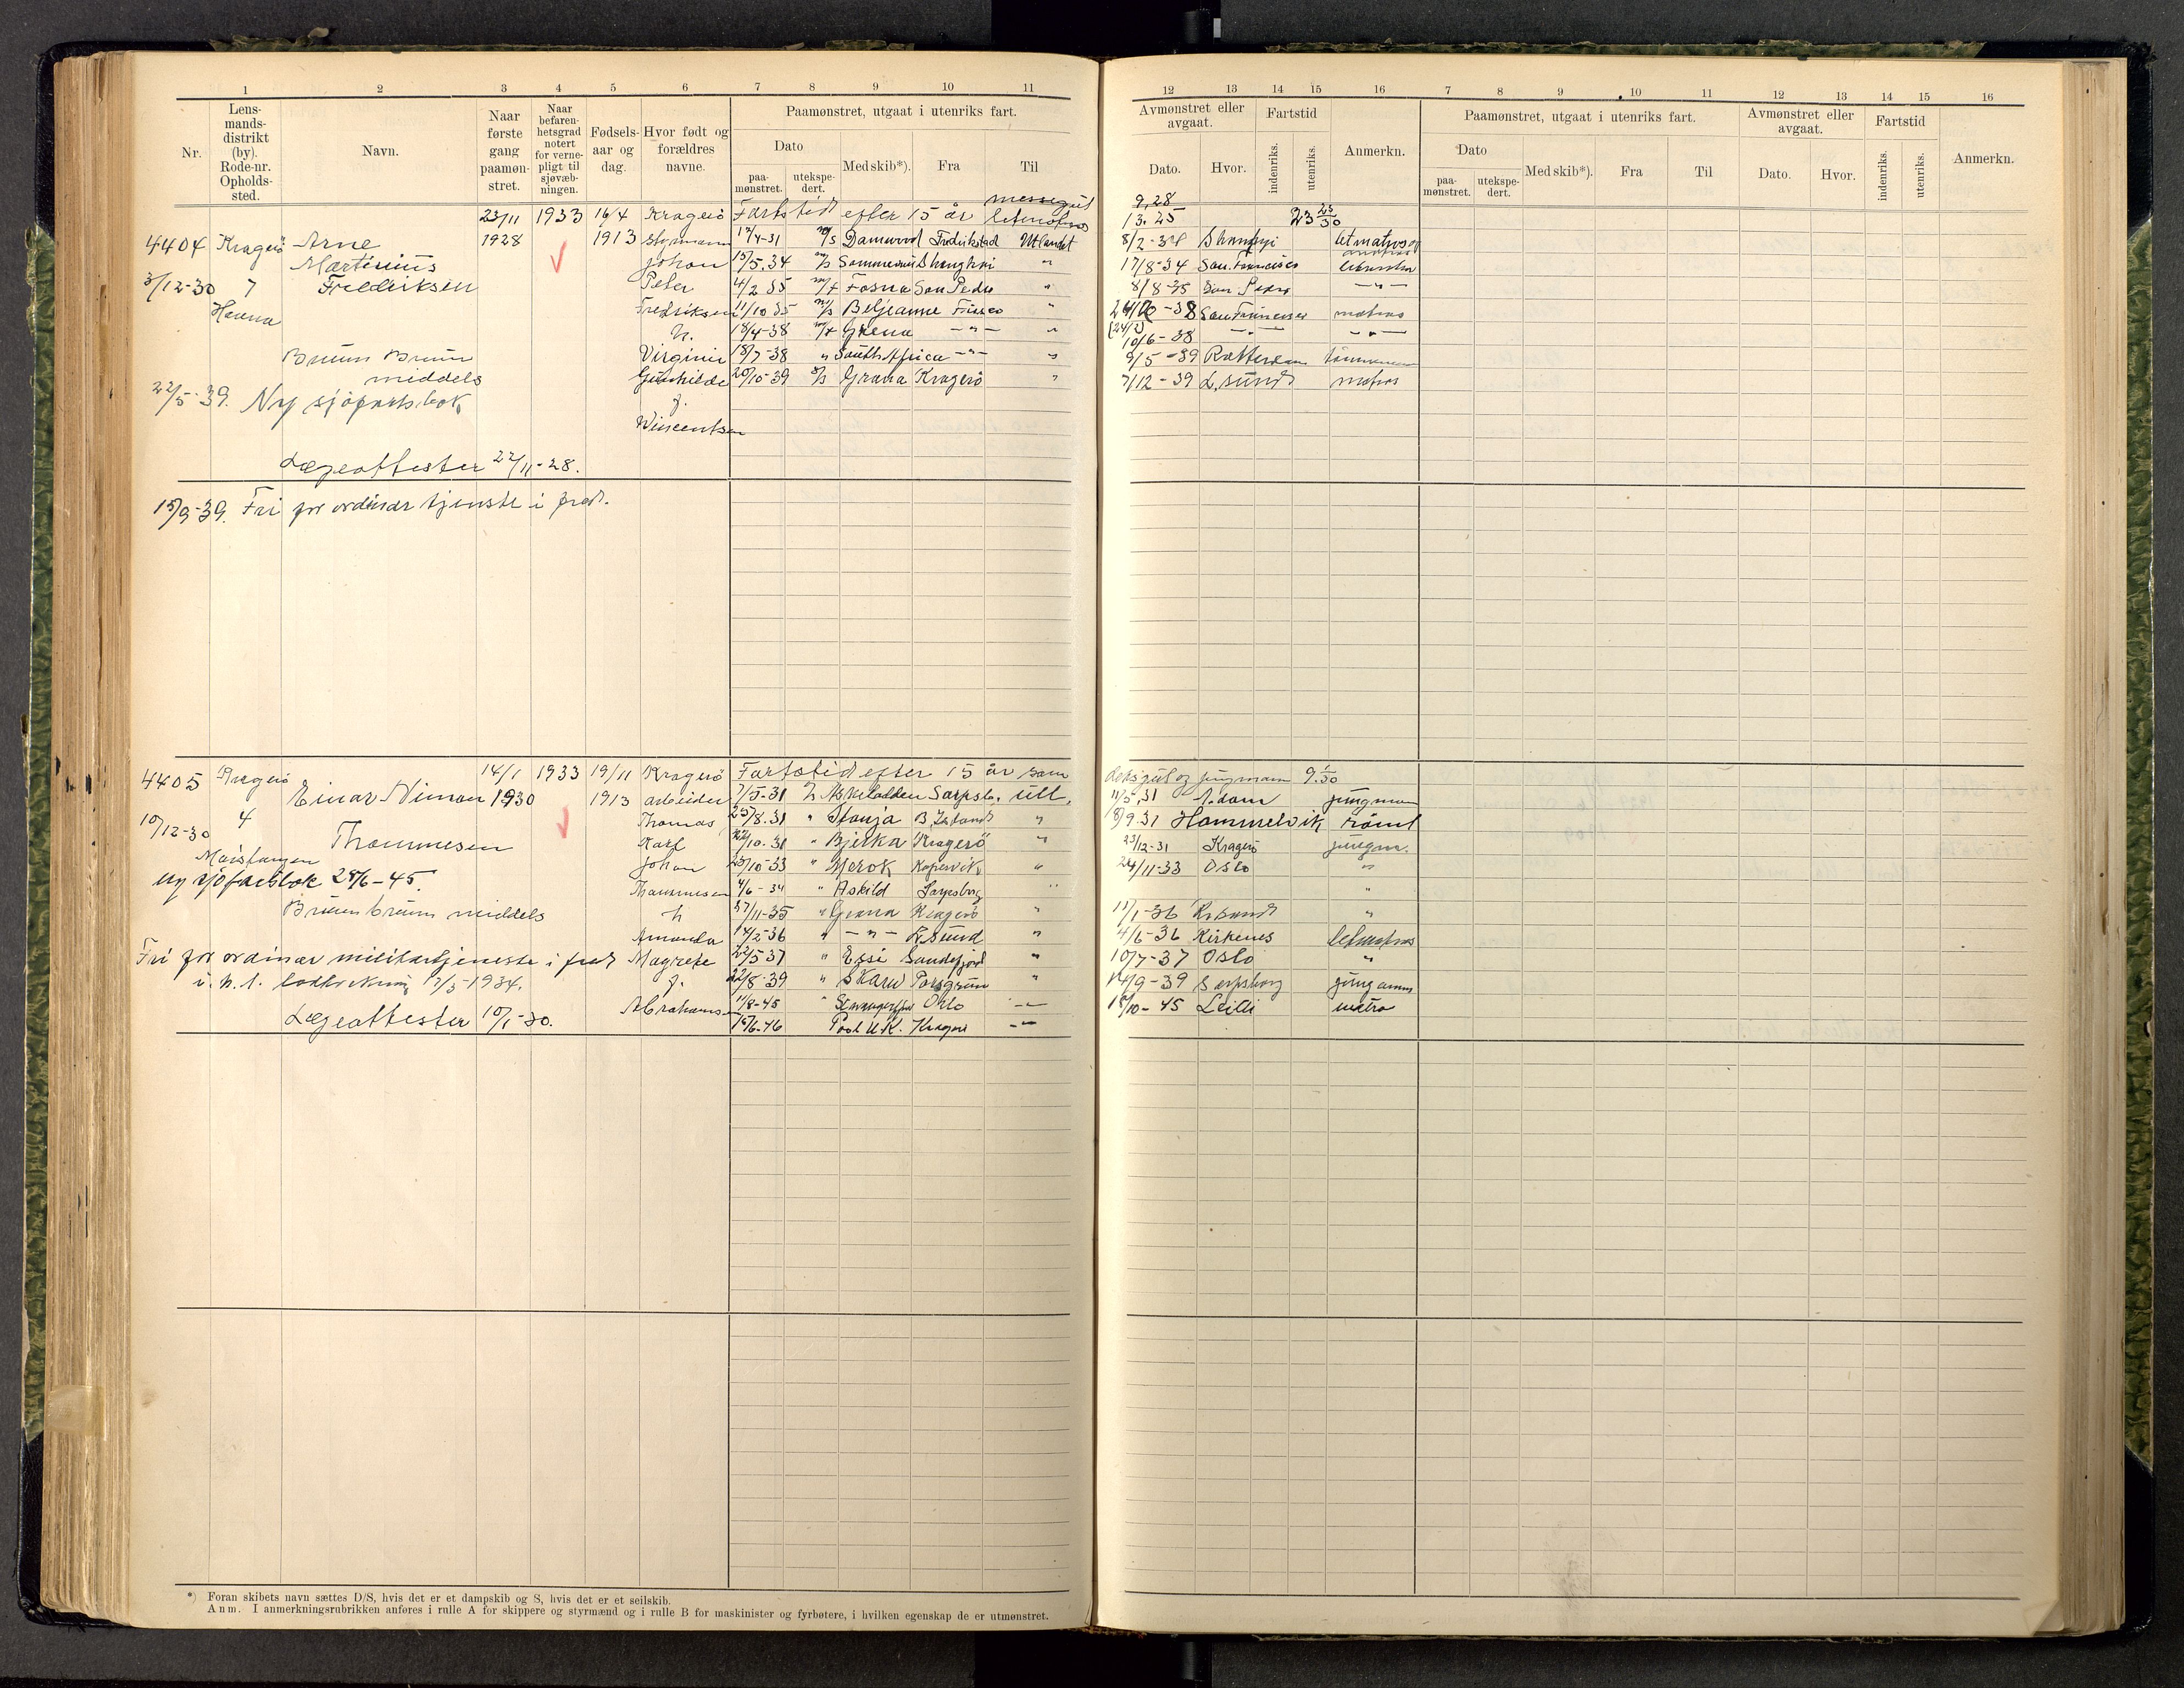 1 2 3 4 5 6 7 8 9 10 11
Nr.
Lens-
mands-
distrikt
(by).
Rode-nr.
Opholds-
sted.
Navn.
Naar
første
gang
paamøn-
stret.
Naar
befaren-
hetsgrad
notert
for verne-
pligt til
sjøvæb-
ningen.
Fødsels-
aar og
dag.
Hvor født og
forældres
navne.
Paamønstret, utgaat i utenriks fart.
Dato
paa-
mønstret.
utekspe-
dert.
Med skib*).
Fra
Til
23/11 1933 16/4 Kragerö Fartstid efter 15 år messegut
4404 Kragerö Arne 1928 1913 Styrmann 17/4-31 m/s Damwood Fredrikstad Utlandet
Martinius Johan 15/5.34 m/s Shanghai "
3/12-30 7 Fredriksen Peter 4/2 35 m/t Fosna San Pedro "
Henna Fredriksen 11/10 35 m/s Beljeanne Frisco "
h. 18/4-38 m/t Grena -"- "
Bruun Bruun Virginie 18/7-38 " South Africa -"- "
middels Gunhilde 20/10-39 s/s Grana Kragerö "
22/5-39. Ny sjöfartsbok f.
Wincentsen
Lægeattester 22/11-28.
15/9-39. Fri for ordinær tjenste i fred.
4405 Kragerö 14/1 1933 19/11 Kragerö Fartstid efter 15 år som
Einar Niman 1930 1913 arbeider 7/5-31 Askeladden Sarpsb. Utl.
10/12-30 4 Thomas 25/8.31 " Stanja "
Thommesen Karl 22/10.31 " Bjerka Kragerö "
Johan 25/10-33 " Merok Kopervik "
ny sjöfartsbok 28/6-45. Thommesen 4/6-34 " Askild Sarpsborg "
Bruun bruun middels h 27/11-35 " Grana Kragerö "
Amanda 14/2-36 " -"- Kr.sund "
Fri for ordinær militærtjeneste i fred Magrete 22/5 37 " Essi Sandefjord "
1/3-1934. f. 22/8-39 " Skard Porsgrunn "
Lægeattester 10/1-30. Abrahamsen 11/8-45 " Stavangerfjord Oslo -"-
15/6-46 Pool U.K. Kragerö -"-
*) Foran skibets navn sættes D/S, hvis det er et dampskib og S, hvis det er et seilskib.
Anm. I anmerkningsrubrikken anføres i rulle A for skippere og styrmænd og i rulle B for maskinister og fyrbøtere, i hvilken egenskap de er utmønstret.
12 13 14 15 16 7 8 9 10 11 12 13 14 15 16
Avmønstret eller
avgaat.
Fartstid
Dato.
Hvor.
indenriks.
utenriks.
Anmerkn.
Paamønstret, utgaat i utenriks fart.
Dato
paa-
mønstret.
utekspe-
dert.
Med skib*).
Fra
Til
Avmønstret eller
avgaat.
Fartstid
Dato.
Hvor.
indenriks.
utenriks.
Anmerkn.
9,28
13.25 23 23/30
8/2-34 letmatros og
17/8-34 San. Francisco
8/8-35 San Pedro -"-
-38 San Francisco matros
10/6-38 -"- -"-
9/5-39 Rotterdam tömmermann
7/12-39 L.sund matros
deksgut og jungmann 9.1/30
11/5.31 A.dam jungman
8/9.31 Hommelvik römt
23/12-31 Kragerö jungm.
24/11-33 Oslo "
"
11/1-36 Kr.sand "
4/6-36 Kirkenes letmatros
10/7-37 Oslo "
14/9-39 Sarpsborg
18/10-45 matro